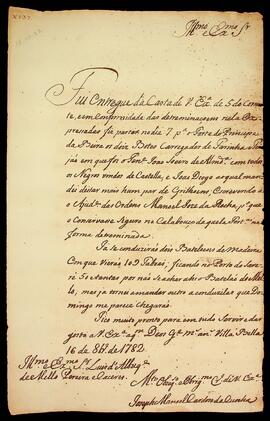 Illmo. e Exmo. Sr.
Fui Entregue da Carta de V. Exa. de 5 do Corren
te, e em Conformidade das determinaçoens nella Ex
presadas fis partir no dia 7 pa. o Forte do Principe
da Beira os dois Botes Carregados de Farinha, e
em que foi o Joao com todos
os Negros vindos de Castella, e Joze Diogo aquem man
dei deitar mais hum par de Grilhoens Escrevendo a
o Ajude. das Ordens Manoel Joze da Rocha, pa. que
o Conservase Seguro no Calabouço daquela
forma determinada.
Já Se conduzirão dois Batelloens de Madeira
Com que vierão ficando no Porto do
5 e tantas por não Se achar ahi o Batelão do
mas já tornou amandar outro a conduzilas que Do
mingo me parece chegará.
Fico muito pronto para em tudo Servir e dar
gosto a V. Exa. aqm. Deos Gde. ms. ans. Villa Bella
16 de 8bro. de 1782
Illmo. e Exmo. Sr. Luis d'Albuqe.
de Mello Pereira e Caceres.
de V. Exa.
Joseph Manoel Cardozo da Cunha